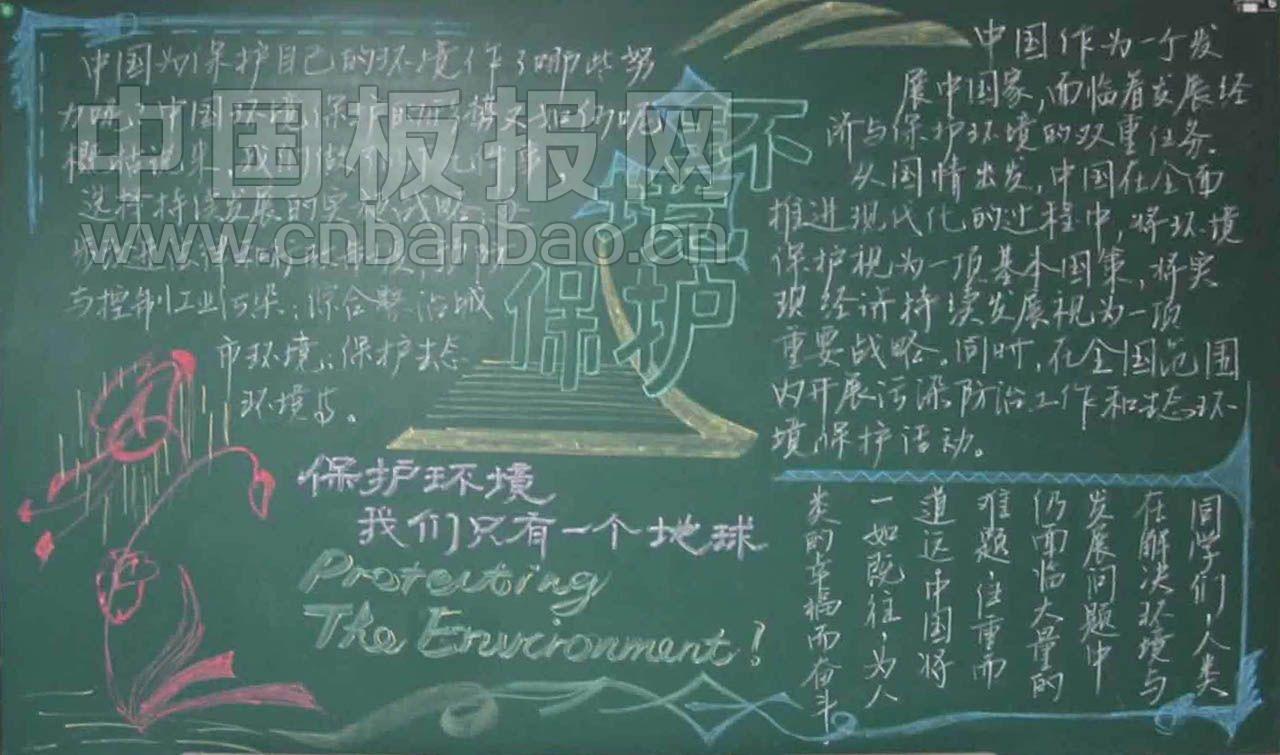 中国为保护自己的环境作了哪些努
力呢、中国环境保护的
概括起来,我们做
选择持续发展的
与控制工业污染;综合整治城
市环境、保护生态
环境等。
环
境
保护
中国作为一个发
展中国家,面临着发展经
济与保护环境的双重任务。
从国情出发,中国在全面
推进现代化的过程中,将环境
保护视为一项基本国策,将实
现经济持续发展视为一项
重要战略。同时,在全国范围
内开展污染防治工作和生态环
境保护活动。
保护环境
我们只有一个地球
Protecting
The Environment!
同学们,人类
在解决环境与
发展问题中
仍面临大量的
难题任重而
道远中国将
一如既往,为人
类的幸福而奋斗
中国板报网
www.cnbanbao.cn